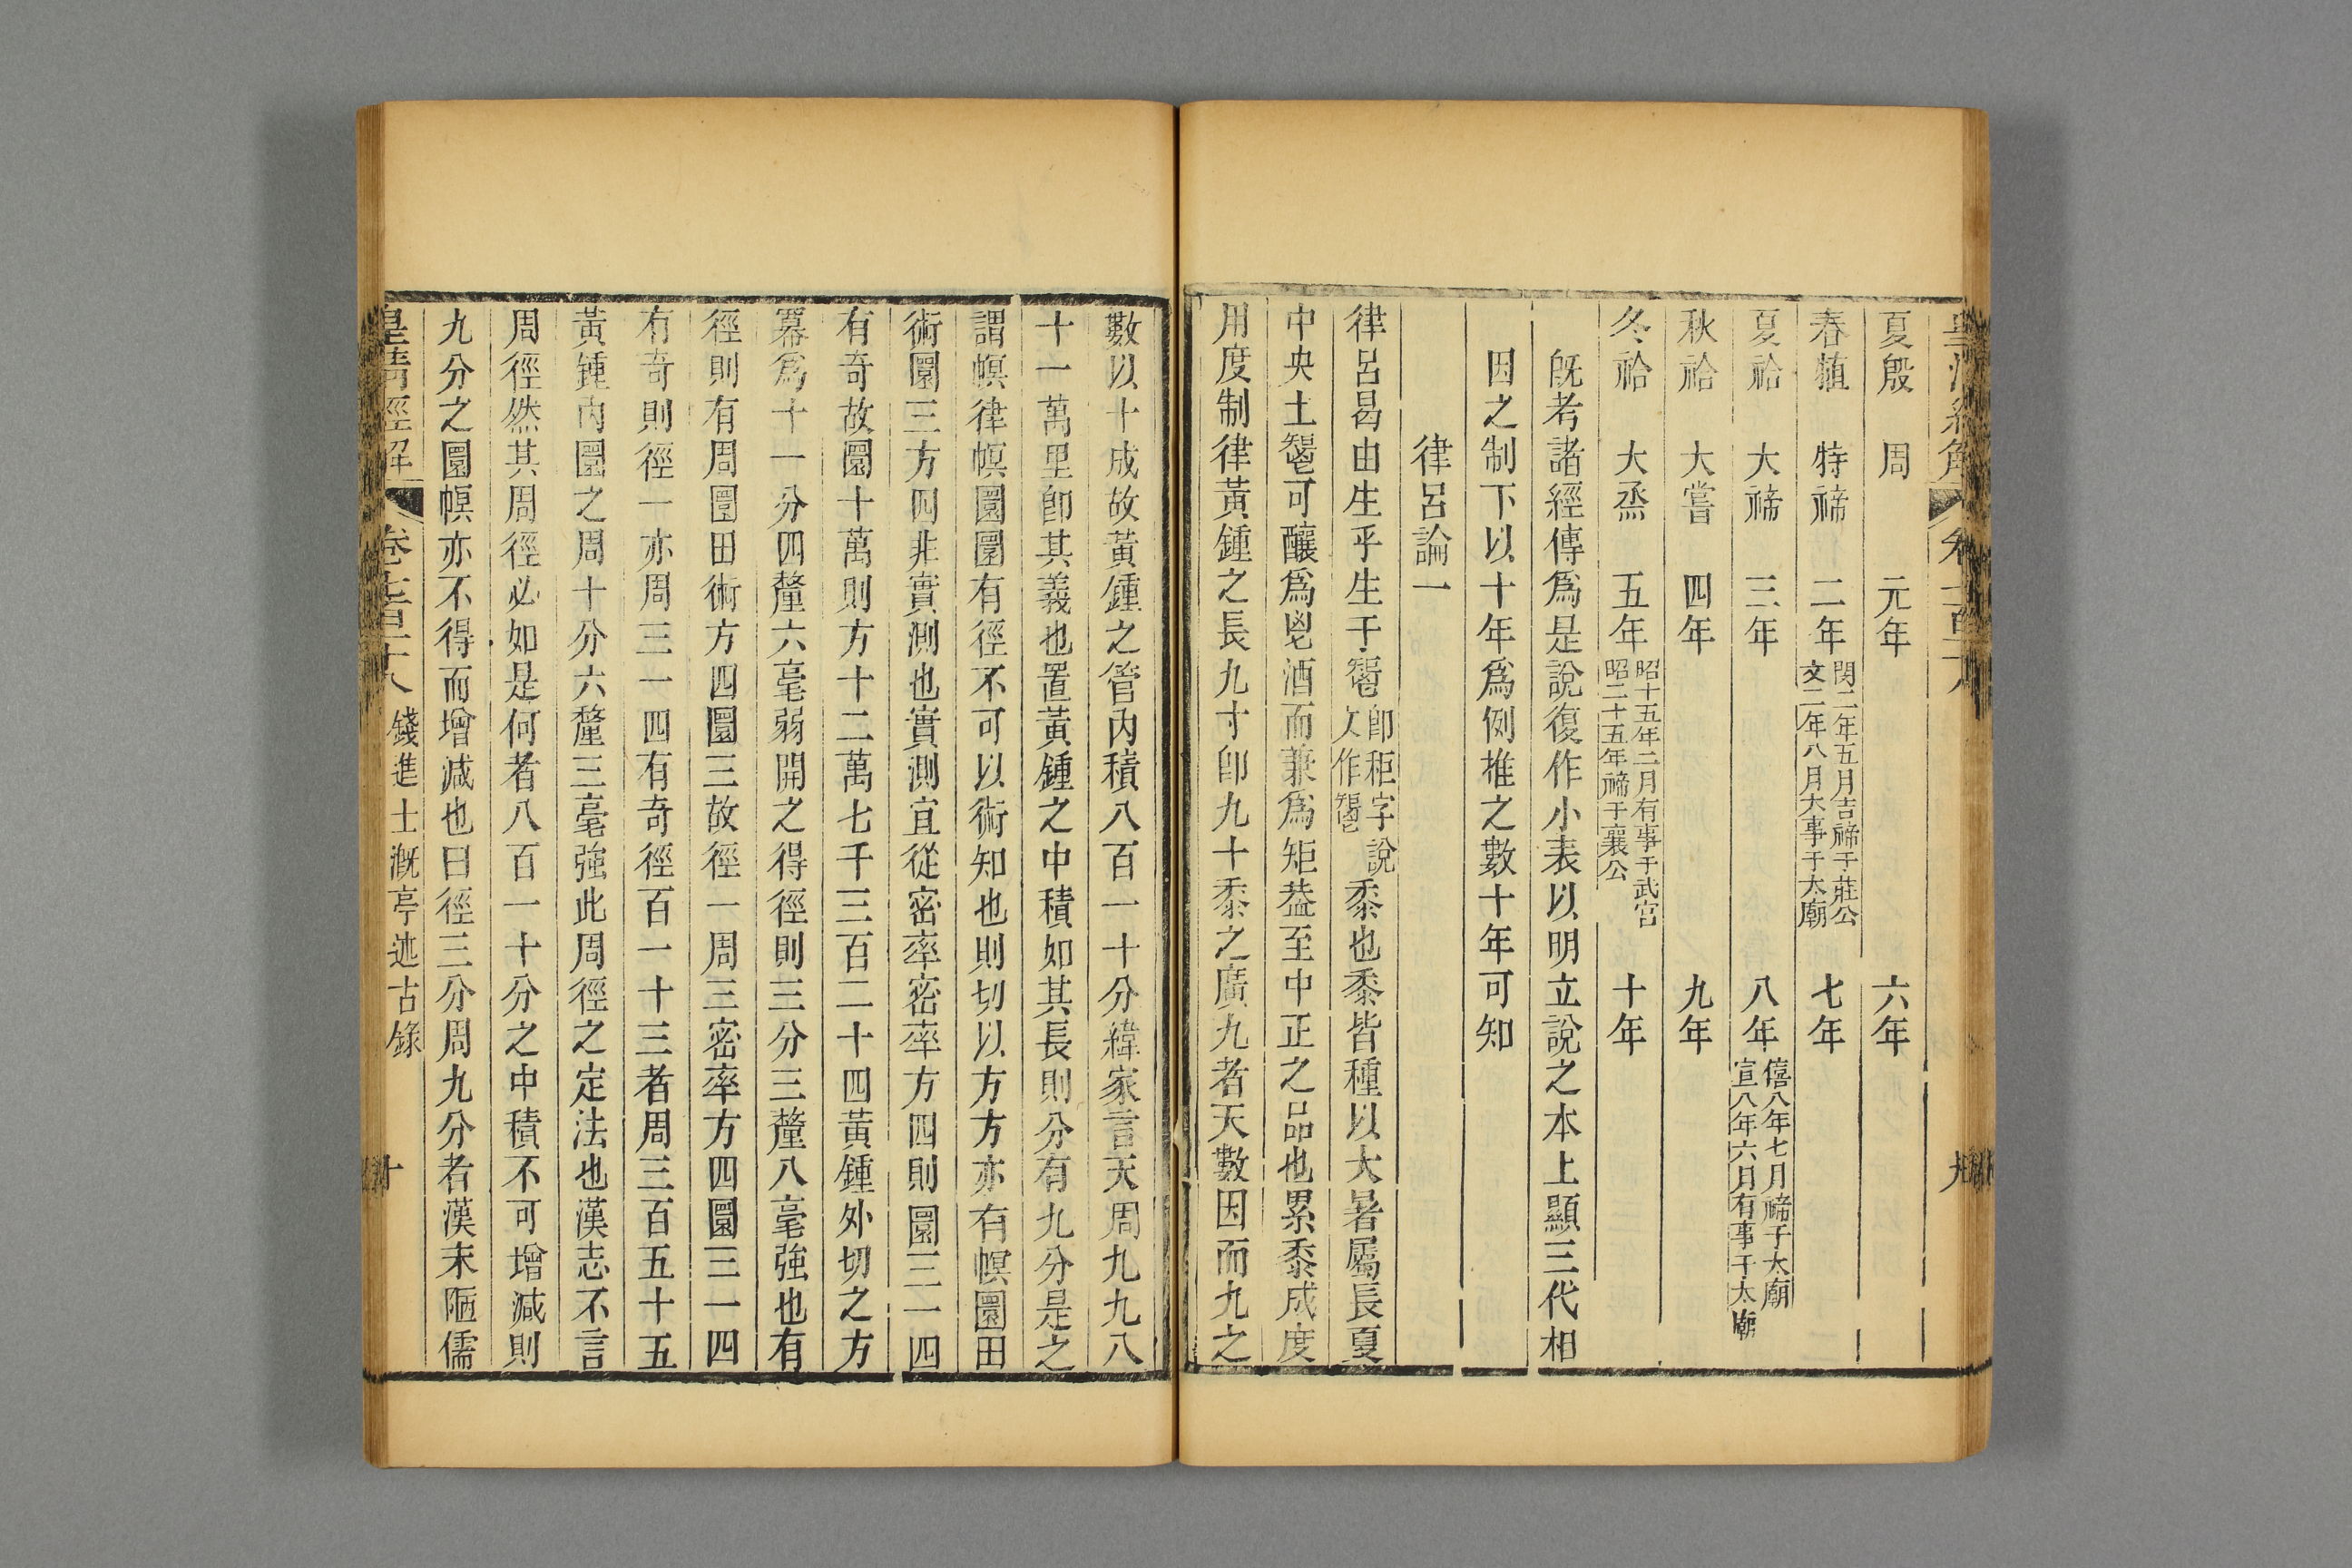 夏殷　周　元年　六年
春犆　特禘　二年　閔二年五月吉禘于莊公　文二年八月大事于太廟　七年
夏祫　大禘　三年　八年　僖八年七月禘于太廟　宣八年六月有事于太廟
秋祫　大嘗　四年　九年
冬祫　大烝　五年　昭十五年二月有事于武宮　昭二十五年禘于襄公　十年
既考諸經傳爲是說復作小表以明立說之本上顯三代相
因之制下以十年爲例推之數十年可知
律呂論一
律呂曷由生乎生于𩰪卽秬字說文作𩰪黍也黍皆種以大暑屬長夏
中央土𩰪可釀爲鬯酒而兼爲矩葢至中正之品也累黍成度
用度制律黃鍾之長九寸卽九十黍之廣九者天數因而九之
數以十成故黃鍾之管內積八百一十分緯家言天周九九八
十一萬里卽其義也置黃鍾之中積如其長則分有九分是之
謂幎律幎圜圜有徑不可以術知也則切以方方亦有幎圜田
術圜三方四非實測也實測宜從密率密率方四則圜三一四
有奇故圜十萬則方十二萬七千三百二十四黃鍾外切之方
冪爲十一分四釐六毫弱開之得徑則三分三釐八毫強也有
徑則有周圜田術方四圜三故徑一周三密率方四圜三一四
有奇則徑一亦周三一四有奇徑百一十三者周三百五十五
黃鍾內圜之周十分六釐三毫強此周徑之定法也漢志不言
周徑然其周徑必如是何者八百一十分之中積不可增減則
九分之圜幎亦不得而增減也曰徑三分周九分者漢末陋儒
皇清經解　卷七百十八　錢進士溉亭述古錄　十